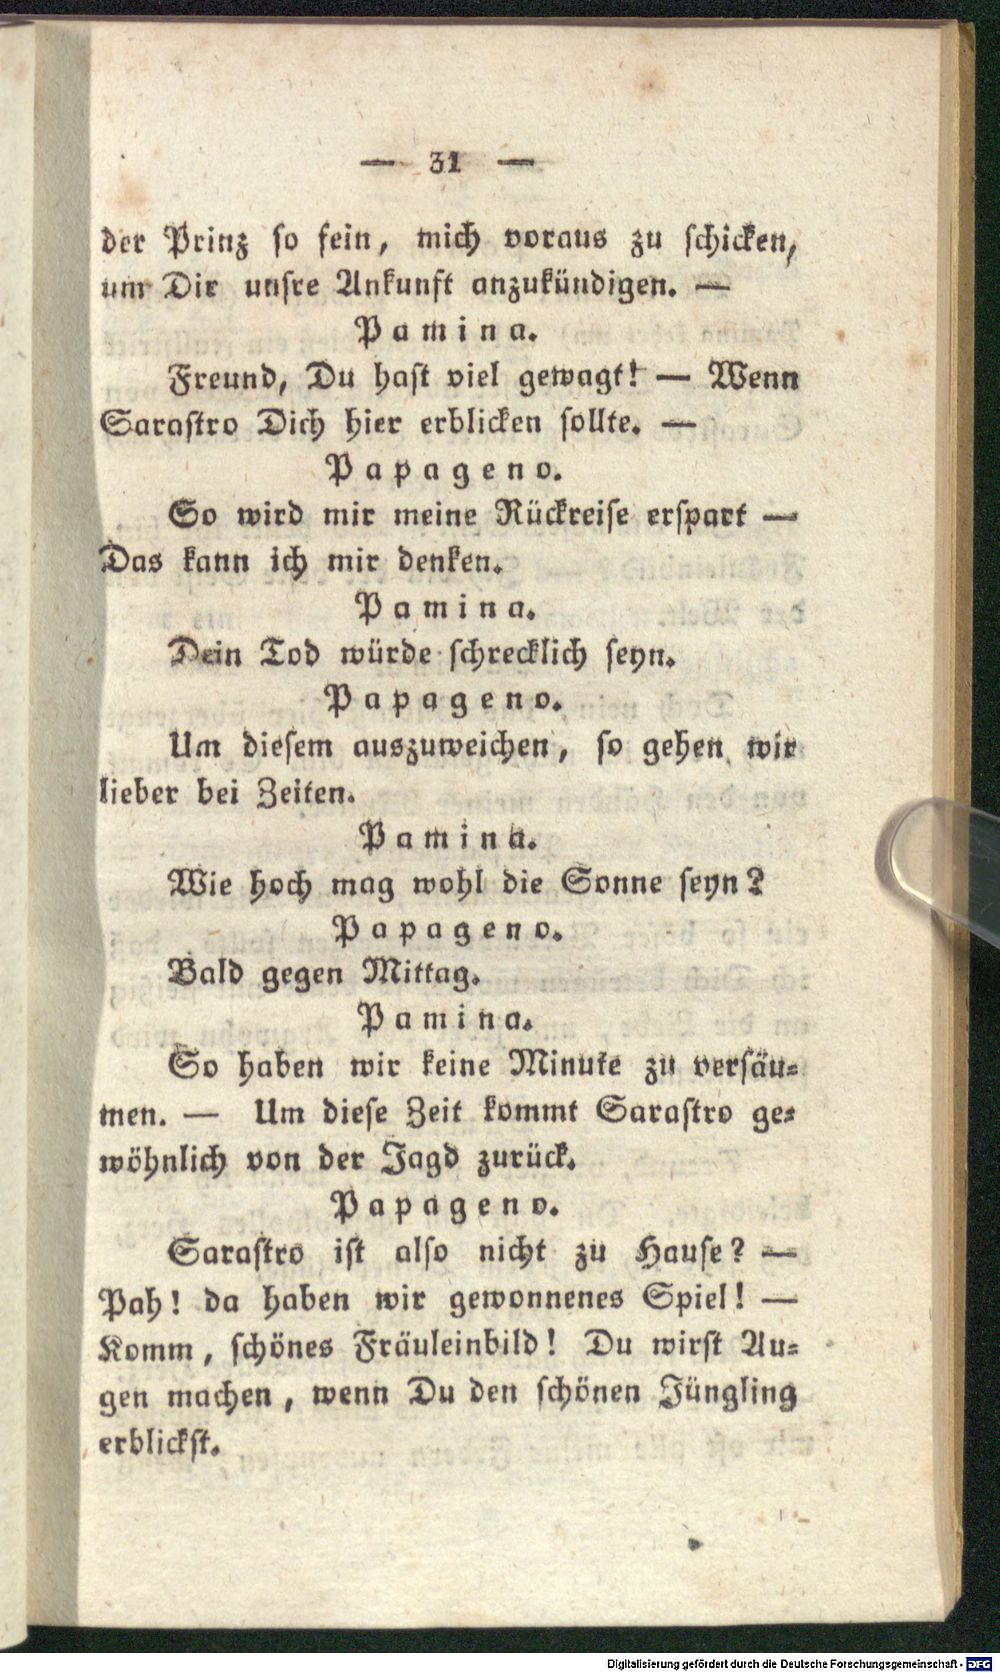 — 31 —
der Prinz so fein, mich voraus zu schicken,
um Dir unsre Ankunft anzukündigen. —
Pamina.
Freund, Du hast viel gewagt! — Wenn
Sarastro Dich hier erblicken sollte. —
Papageno.
So wird mir meine Rückreise erspart —
Das kann ich mir denken.
Pamina.
Dein Tod würde schrecklich seyn.
Papageno.
Um diesem auszuweichen, so gehen wir
lieber bei Zeiten.
Pamina.
Wie hoch mag wohl die Sonne seyn?
Papageno.
Bald gegen Mittag.
Pamina.
So haben wir keine Minute zu versäu-
men. — Um diese Zeit kommt Sarastro ge-
wöhnlich von der Jagd zurück.
Papageno.
Sarastro ist also nicht zu Hause? —
Pah! da haben wir gewonnenes Spiel! —
Komm, schönes Fräuleinbild! Du wirst Au-
gen machen, wenn Du den schönen Jüngling
erblickst.
Digitalisierung gefördert durch die Deutsche Forschungsgemeinschaft - DFG